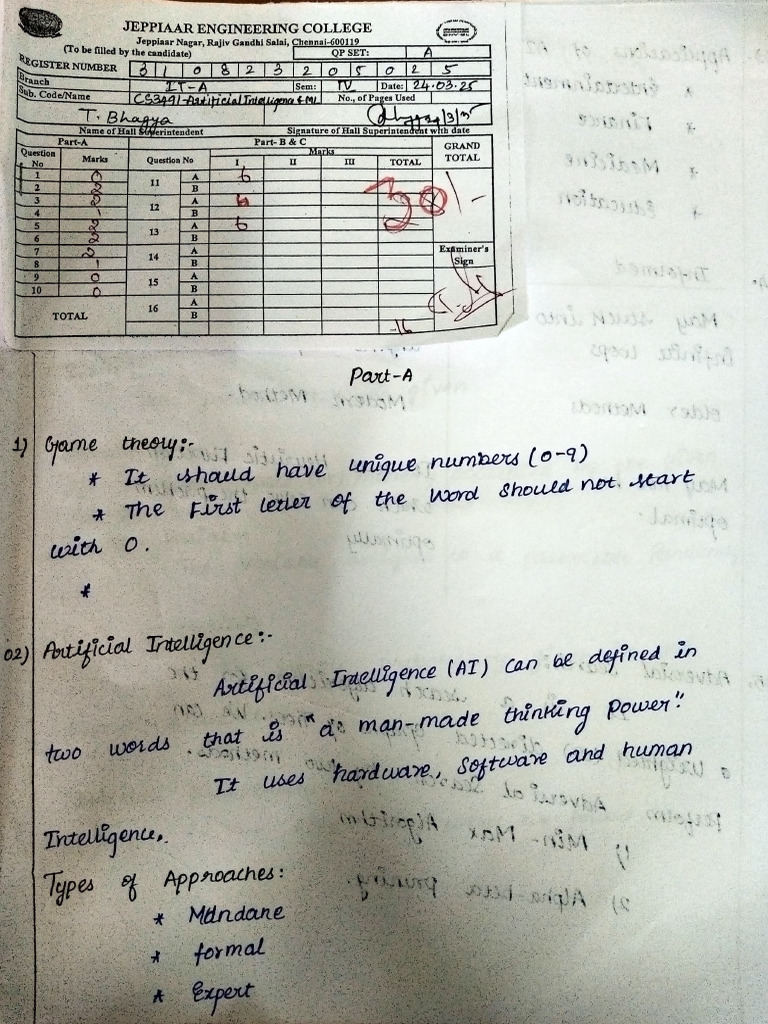 JEPPIAAR ENGINEERING COLLEGE
Jeppiaar Nagar, Rajiv Gandhi Salai, Chennai-600119
(To be filled by the candidate) QP SET: A
REGISTER NUMBER 3 1 0 8 2 3 2 0 5 0 2 5
Branch IT-A Sem: IV Date: 24.03.25
Sub. Code/Name CS3491-Artificial Intelligence & ML No., of Pages Used
T. Bhagya
Name of Hall Superintendent Signature of Hall Superintendent with date
Part-A Part- B & C GRAND TOTAL
Question No Marks Question No Marks
I II III TOTAL
1 0 11 A 6
2 2 B
3 2 12 A 6
4 - B
5 2 13 A 6
6 2 B
7 2 14 A Examiner's Sign
8 - B
9 0 15 A
10 0 B
TOTAL 16 A
B
30/-
16
Part-A
1) Game theory:-
* It should have unique numbers (0-9)
* The First letter of the word should not start
with 0.
*
02) Artificial Intelligence:-
Artificial Intelligence (AI) can be defined in
two words that is "a man-made thinking power".
It uses hardware, software and human
Intelligence.
Types of Approaches:
* Mundane
* formal
* Expert